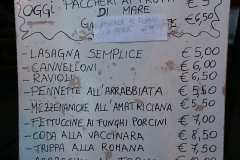 OGGI: PACCHERI AI FRUTTI € 9
DI MARE
€6,50
- LASAGNA SEMPLICE € 5,00
- CANNELLONI € 6,00
- RAVIOLI € 6,50
- PENNETTE ALL'ARRABBIATA € 5,50
- MEZZEMANICHE ALL'AMATRICIANA € 5,50
- FETTUCCINE AI FUNGHI PORCINI € 7,00
- CODA ALLA VACCINARA € 8,50
- TRIPPA ALLA ROMANA € 7,50